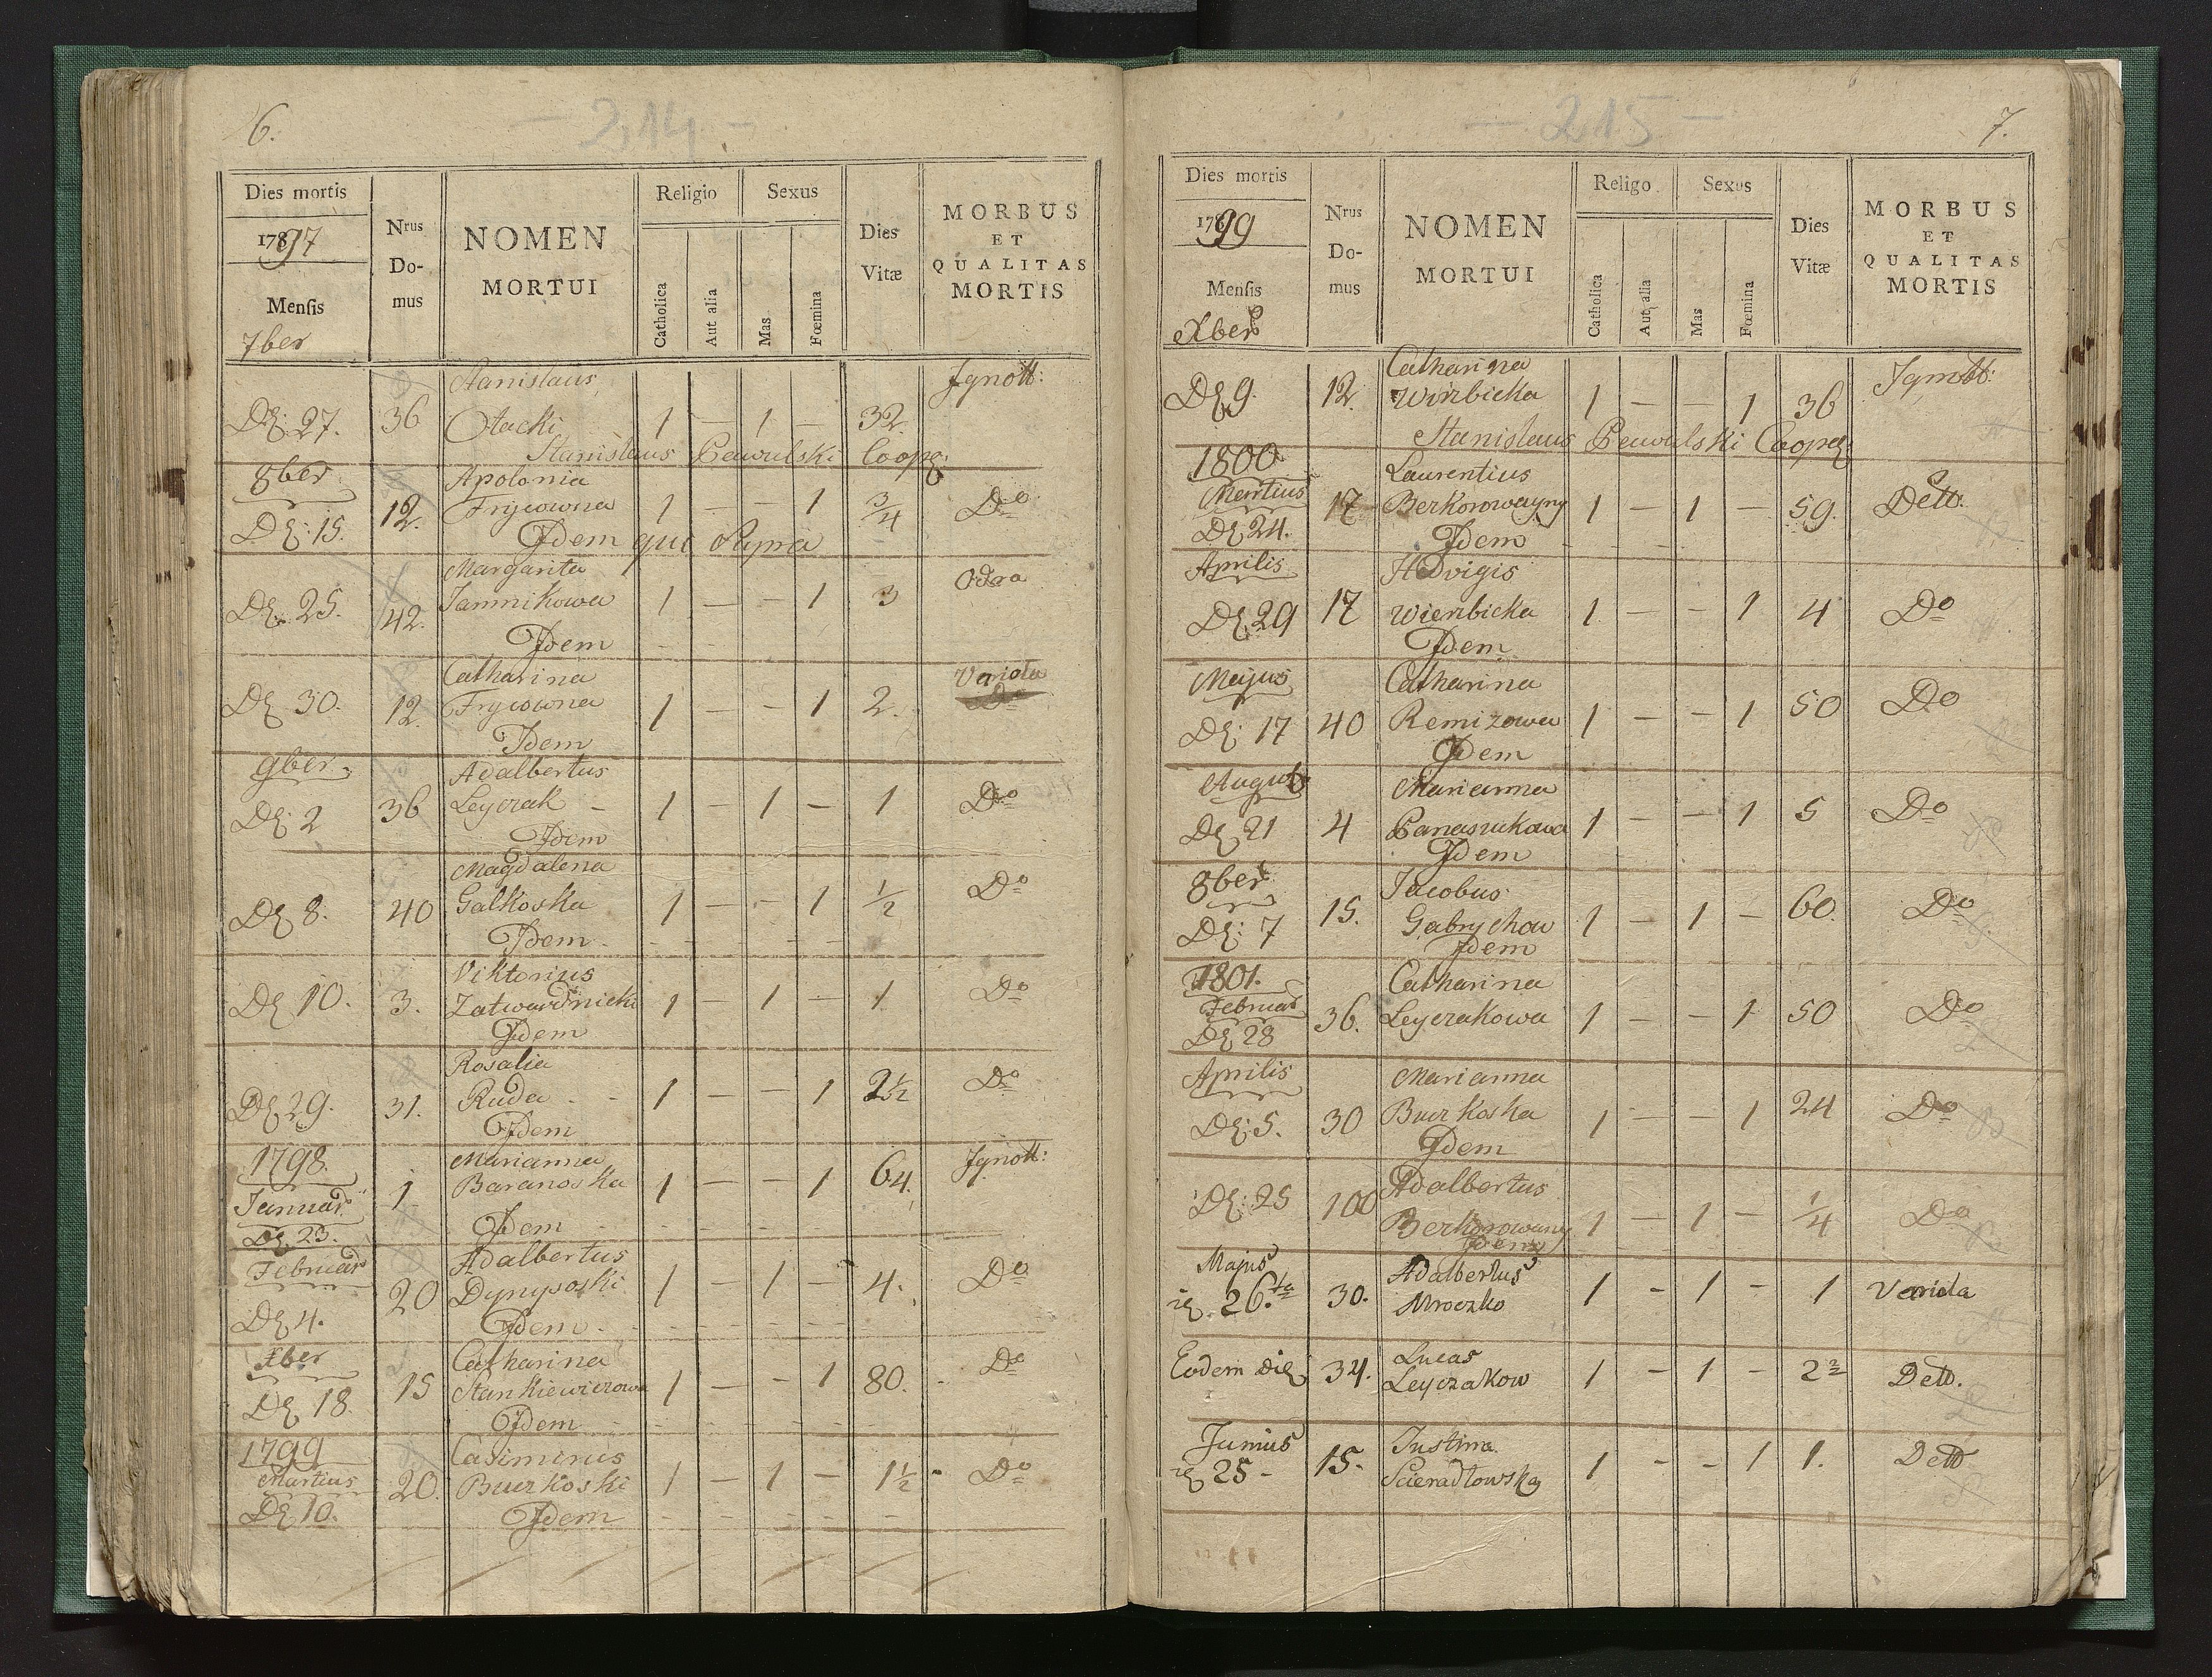 6.
- 214 -
Dies mortis
1797
Mensis
7ber
Nrus Domus
NOMEN MORTUI
Religio
Catholica
Aut alia
Sexus
Mas
Fœmina
Dies Vitæ
MORBUS ET QUALITAS MORTIS
Stanislaus Ignott:
De: 27. 36 Otacki 1 — 1 — 32.
Stanislaus Cooper
8ber Apolonia
De: 15. 12. Frycowna 1 — — 1 3/4 Do
Idem qui Supra
Margarita
De. 25. 42. Jannikowa 1 — — 1 3
Idem
Catharina Variola
De 30. 12. Frycowna 1 — — 1 2. Do
Idem
9ber Adalbertus
De: 2 36 Leyczak 1 — 1 — 1 Do
Idem
Magdalena
De 8. 40 Galkoska 1 — — 1 1/2 Do
Idem
Viktorius
De 10. 3. Zatwardnicki 1 — 1 — 1 Do
Idem
Rosalia
De 29. 31. Ruda 1 — — 1 2 1/2 Do
Idem
1798. Marianna Ignott:
Januar 1 Baranoska 1 — — 1 64.
De. 23. Idem
Februar Adalbertus
De 4. 20 1 — 1 — 4. Do
Idem
Xber Catharina
De 18. 15 Stankiewiczowa 1 — — 1 80. Do
Idem
1799 Casimirus
Martius 20. Buczkoski 1 — 1 — 1 1/2 Do
De 10. Idem
- 215 -
7.
Dies mortis
1799
Mensis
Xber
Nrus Domus
NOMEN MORTUI
Religo
Catholica
Aut alia
Sexus
Mas
Fœmina
Dies Vitæ
MORBUS ET QUALITAS MORTIS
Catharina Ignott:
De 9. 12. Wirzbicka 1 — — 1 36
Stanislaus Cooper
1800 Laurentius
Martius 17 Berkorowayny 1 — 1 — 59. Detto.
De 24. Idem
Aprilis Hedvigis
De 29 17 Wierzbicka 1 — — 1 4 Do
Idem
Majus Catharina
De: 17 40 Remizowa 1 — — 1 50 Do
Idem
August Marianna
De 21 4 Panasiukowa 1 — — 1 5 Do
Idem
8ber Jacobus
De: 7 15. Gabrychow 1 — 1 — 60. Do
Idem
1801. Catharina
Februar 36. Leyczakowa 1 — — 1 50 Do
De 28
Aprilis Marianna
De: 5. 30 Buczkoska 1 — — 1 24 Do
Idem
De: 25 100 Adalbertus
Berkorowany 1 — 1 — 1/4 Do
Idem
Majus Adalbertus
26. 30. Mroczko 1 — 1 — 1 Variola
Eodem die 34. Lucas
Leyczakow 1 — 1 — 2 Detto.
Junius Justina
25 - 15. 1 — — 1 1. Detto